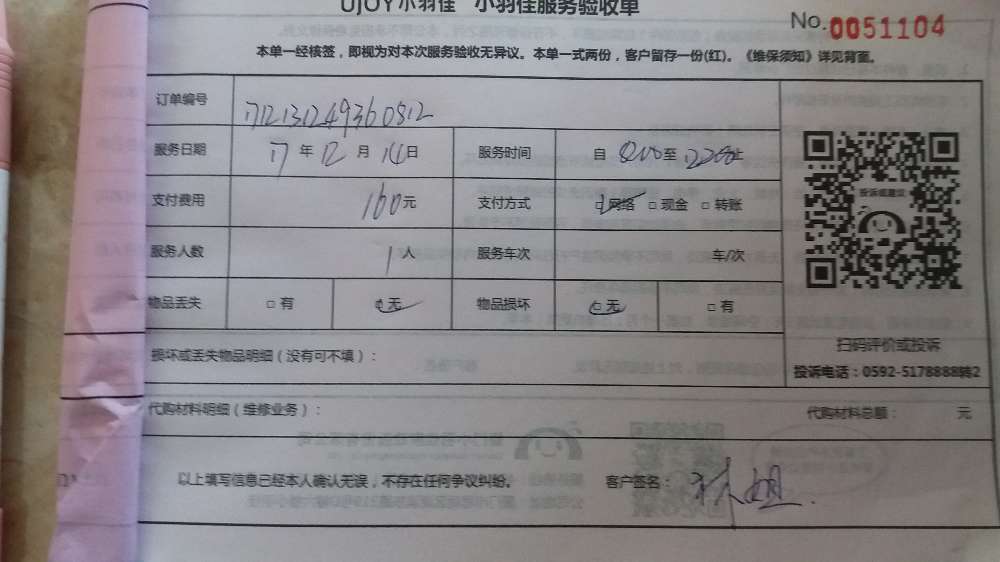 UJOY小羽佳 小羽佳服务验收单
No. 0051104
本单一经核签，即视为对本次服务验收无异议。本单一式两份，客户留存一份(红)。《维保须知》详见背面。
订单编号 1712131249360812
服务日期 17 年 12 月 14 日 服务时间 自 至 止
支付费用 160 元 支付方式 网络 □ 现金 □ 转账
投诉或建议
服务人数 1 人 服务车次 车/次
物品丢失 □ 有 无 物品损坏 无 □ 有
扫码评价或投诉
损坏或丢失物品明细（没有可不填）：
投诉电话：0592-5178888转2
代购材料明细（维修业务）： 代购材料总额： 元
以上填写信息已经本人确认无误，不存在任何争议纠纷。 客户签名： 林姐